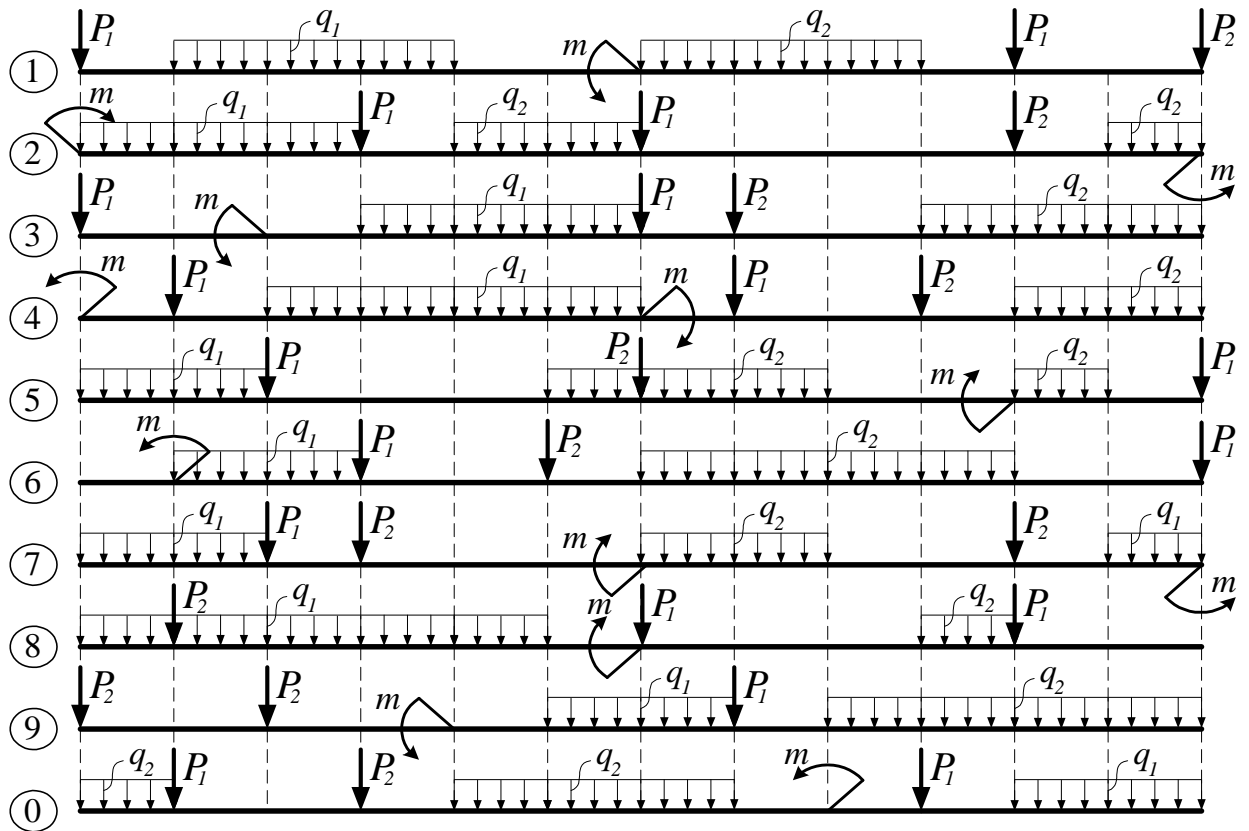 P₁ q₁ m q₂ P₁ P₂
1
m q₁ P₁ q₂ P₁ P₂ q₂
2 m
P₁ m q₁ P₁ P₂ q₂
3
m P₁ q₁ m P₁ P₂ q₂
4
q₁ P₁ P₂ q₂ m q₂ P₁
5
m q₁ P₁ P₂ q₂ P₁
6
q₁ P₁ P₂ m q₂ P₂ q₁
7 m
P₂ q₁ m P₁ q₂ P₁
8
P₂ P₂ m q₁ P₁ q₂
9
q₂ P₁ P₂ q₂ m P₁ q₁
0